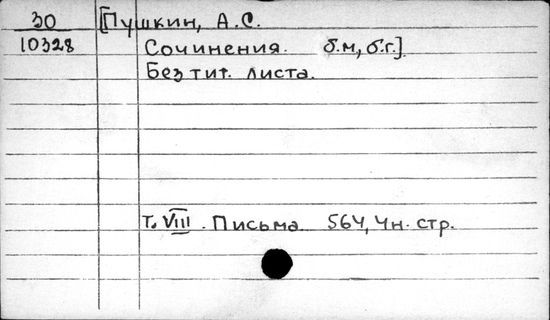 30 [Пушкин, А.С.
10328 Сочинения. б.м, б.г.]
Без тит. листа.
т. VIII. Письма. 564, 4н. стр.